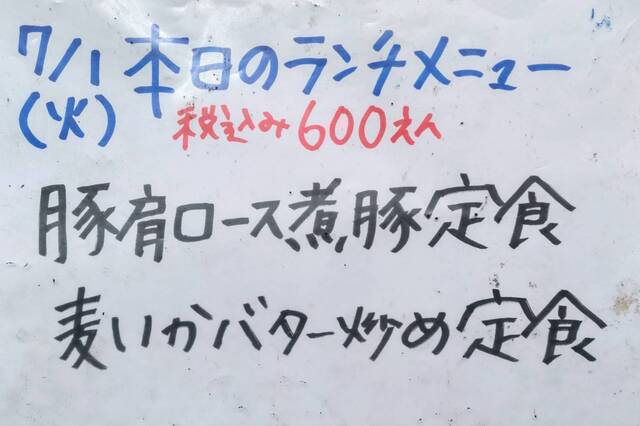 7/1 本日のランチメニュー
(火) 税込み600えん
豚肩ロース煮豚定食
麦いかバター炒め定食